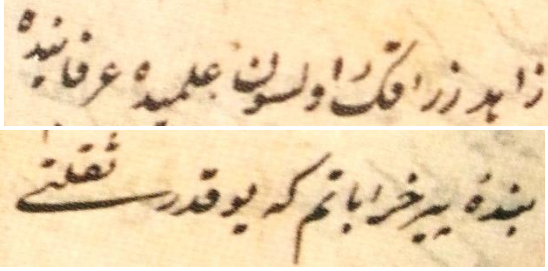 زاهد زراقك اولسون علميده عرفانيده
بندهٔ پير خراباتم كه يوقدر ثقلتى